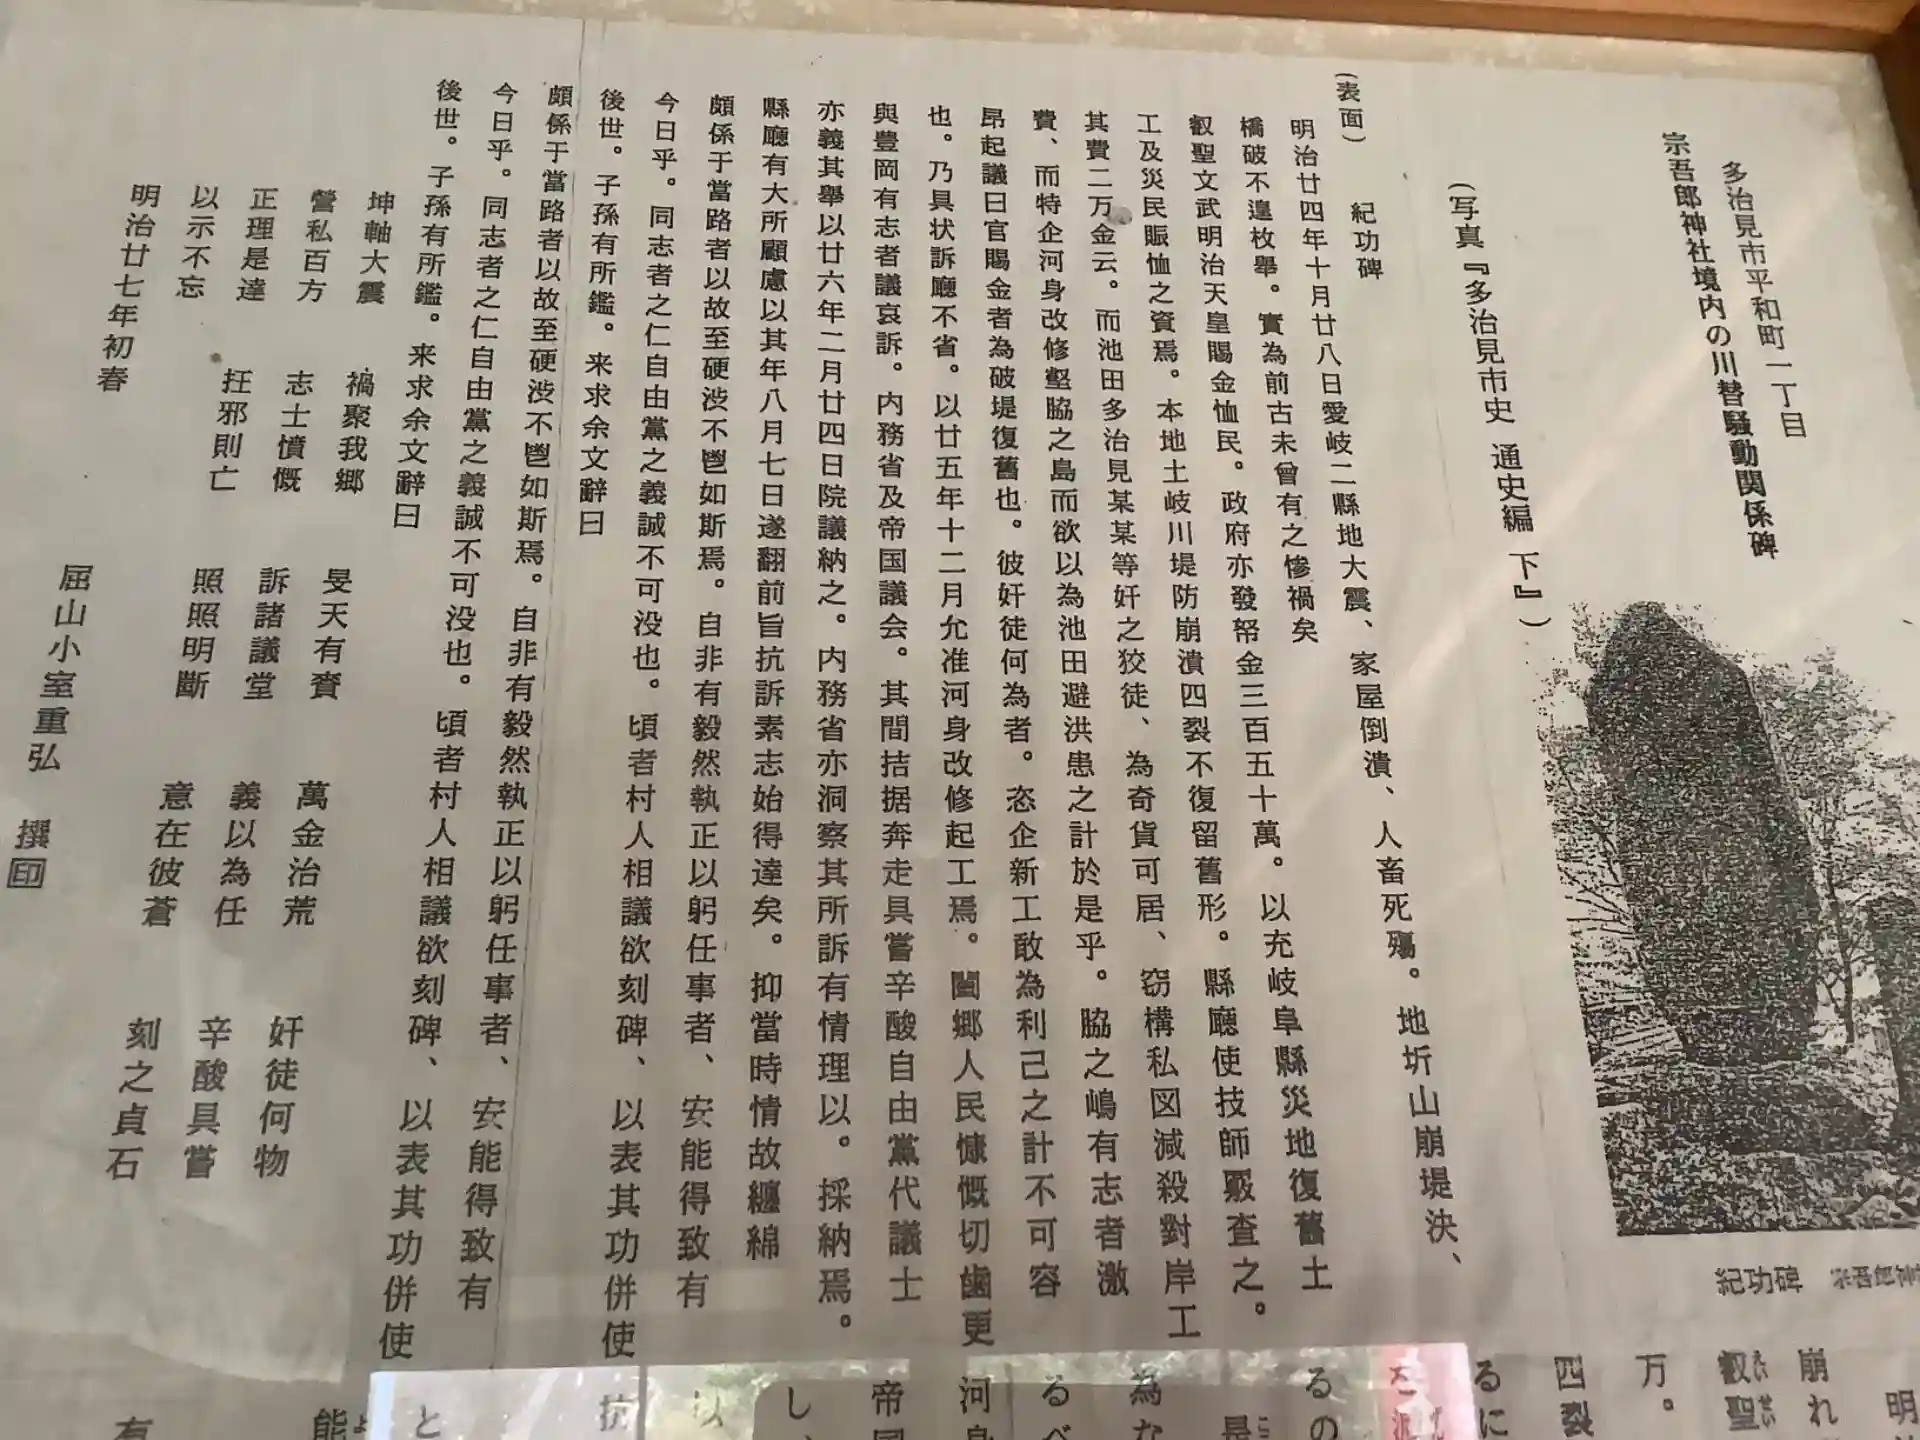 多治見市平和町一丁目
宗吾郎神社境内の川替騒動関係碑
(写真『多治見市史 通史編 下』)
(表面) 紀功碑
明治廿四年十月廿八日愛岐二縣地大震、家屋倒潰、人畜死殤。地圻山崩堤決、
橋破不遑枚舉。實為前古未曾有之惨禍矣
叡聖文武明治天皇賜金恤民。政府亦發帑金三百五十萬。以充岐阜縣災地復舊土
工及災民賑恤之資焉。本地土岐川堤防崩潰四裂不復留舊形。縣廳使技師覈査之。
其費二万金云。而池田多治見某某等奸之狡徒、為奇貨可居、窃構私図減殺對岸工
費、而特企河身改修壑脇之島而欲以為池田避洪患之計於是乎。脇之嶋有志者激
昂起議曰官賜金者為破堤復舊也。彼奸徒何為者。恣企新工敢為利己之計不可容
也。乃具状訴廳不省。以廿五年十二月允准河身改修起工焉。闔郷人民慷慨切齒更
與豊岡有志者議哀訴。内務省及帝国議会。其間拮据奔走具嘗辛酸自由黨代議士
亦義其舉以廿六年二月廿四日院議納之。内務省亦洞察其所訴有情理以。採納焉。
縣廳有大所顧慮以其年八月七日遂翻前旨抗訴素志始得達矣。抑當時情故纏綿
頗係于當路者以故至硬渋不鬯如斯焉。自非有毅然執正以躬任事者、安能得致有
今日乎。同志者之仁自由黨之義誠不可没也。頃者村人相議欲刻碑、以表其功併使
後世。子孫有所鑑。来求余文辭曰
頗係于當路者以故至硬渋不鬯如斯焉。自非有毅然執正以躬任事者、安能得致有
今日乎。同志者之仁自由黨之義誠不可没也。頃者村人相議欲刻碑、以表其功併使
後世。子孫有所鑑。来求余文辭曰
坤軸大震 禍聚我郷 旻天有賚 萬金治荒 奸徒何物
營私百方 志士憤慨 訴諸議堂 義以為任 辛酸具嘗
正理是達 抂邪則亡 照照明斷 意在彼蒼 刻之貞石
以示不忘
明治廿七年初春
屈山小室重弘 撰印
紀功碑 宗吾郎神
明
崩れ
叡聖
万。
四裂
るに
るの
是
為な
るべ
河身
帝国
し、
以
抗
と
能
有